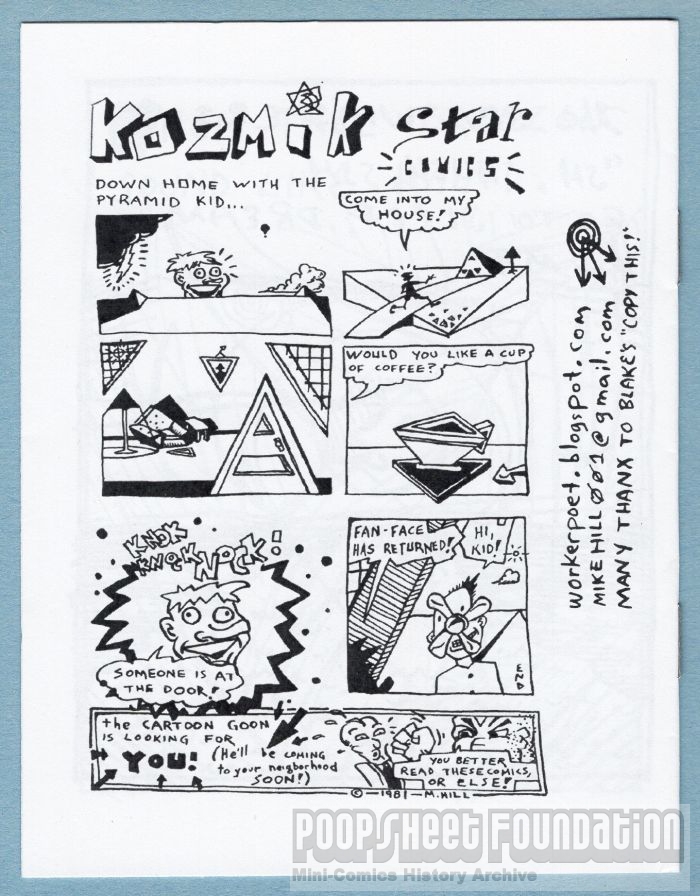 KOZMIK Star
COMICS
DOWN HOME WITH THE
PYRAMID KID...
COME INTO MY
HOUSE!
WOULD YOU LIKE A CUP
OF COFFEE?
KNOK
KNOCK NOCK!
SOMEONE IS AT
THE DOOR!
FAN-FACE
HAS RETURNED!
HI,
KID!
END
the CARTOON GOON
IS LOOKING FOR
YOU! (He'll be COMING
to your neigborhood
SOON!)
YOU BETTER
READ THESE COMICS,
OR ELSE!
©-1981-M.HILL
workerpoet.blogspot.com
MIKEHILL001@gmail.com
MANY THANX TO BLAKE'S "COPY THIS!"
POOPSHEET FOUNDATION
Mini-Comics History Archive